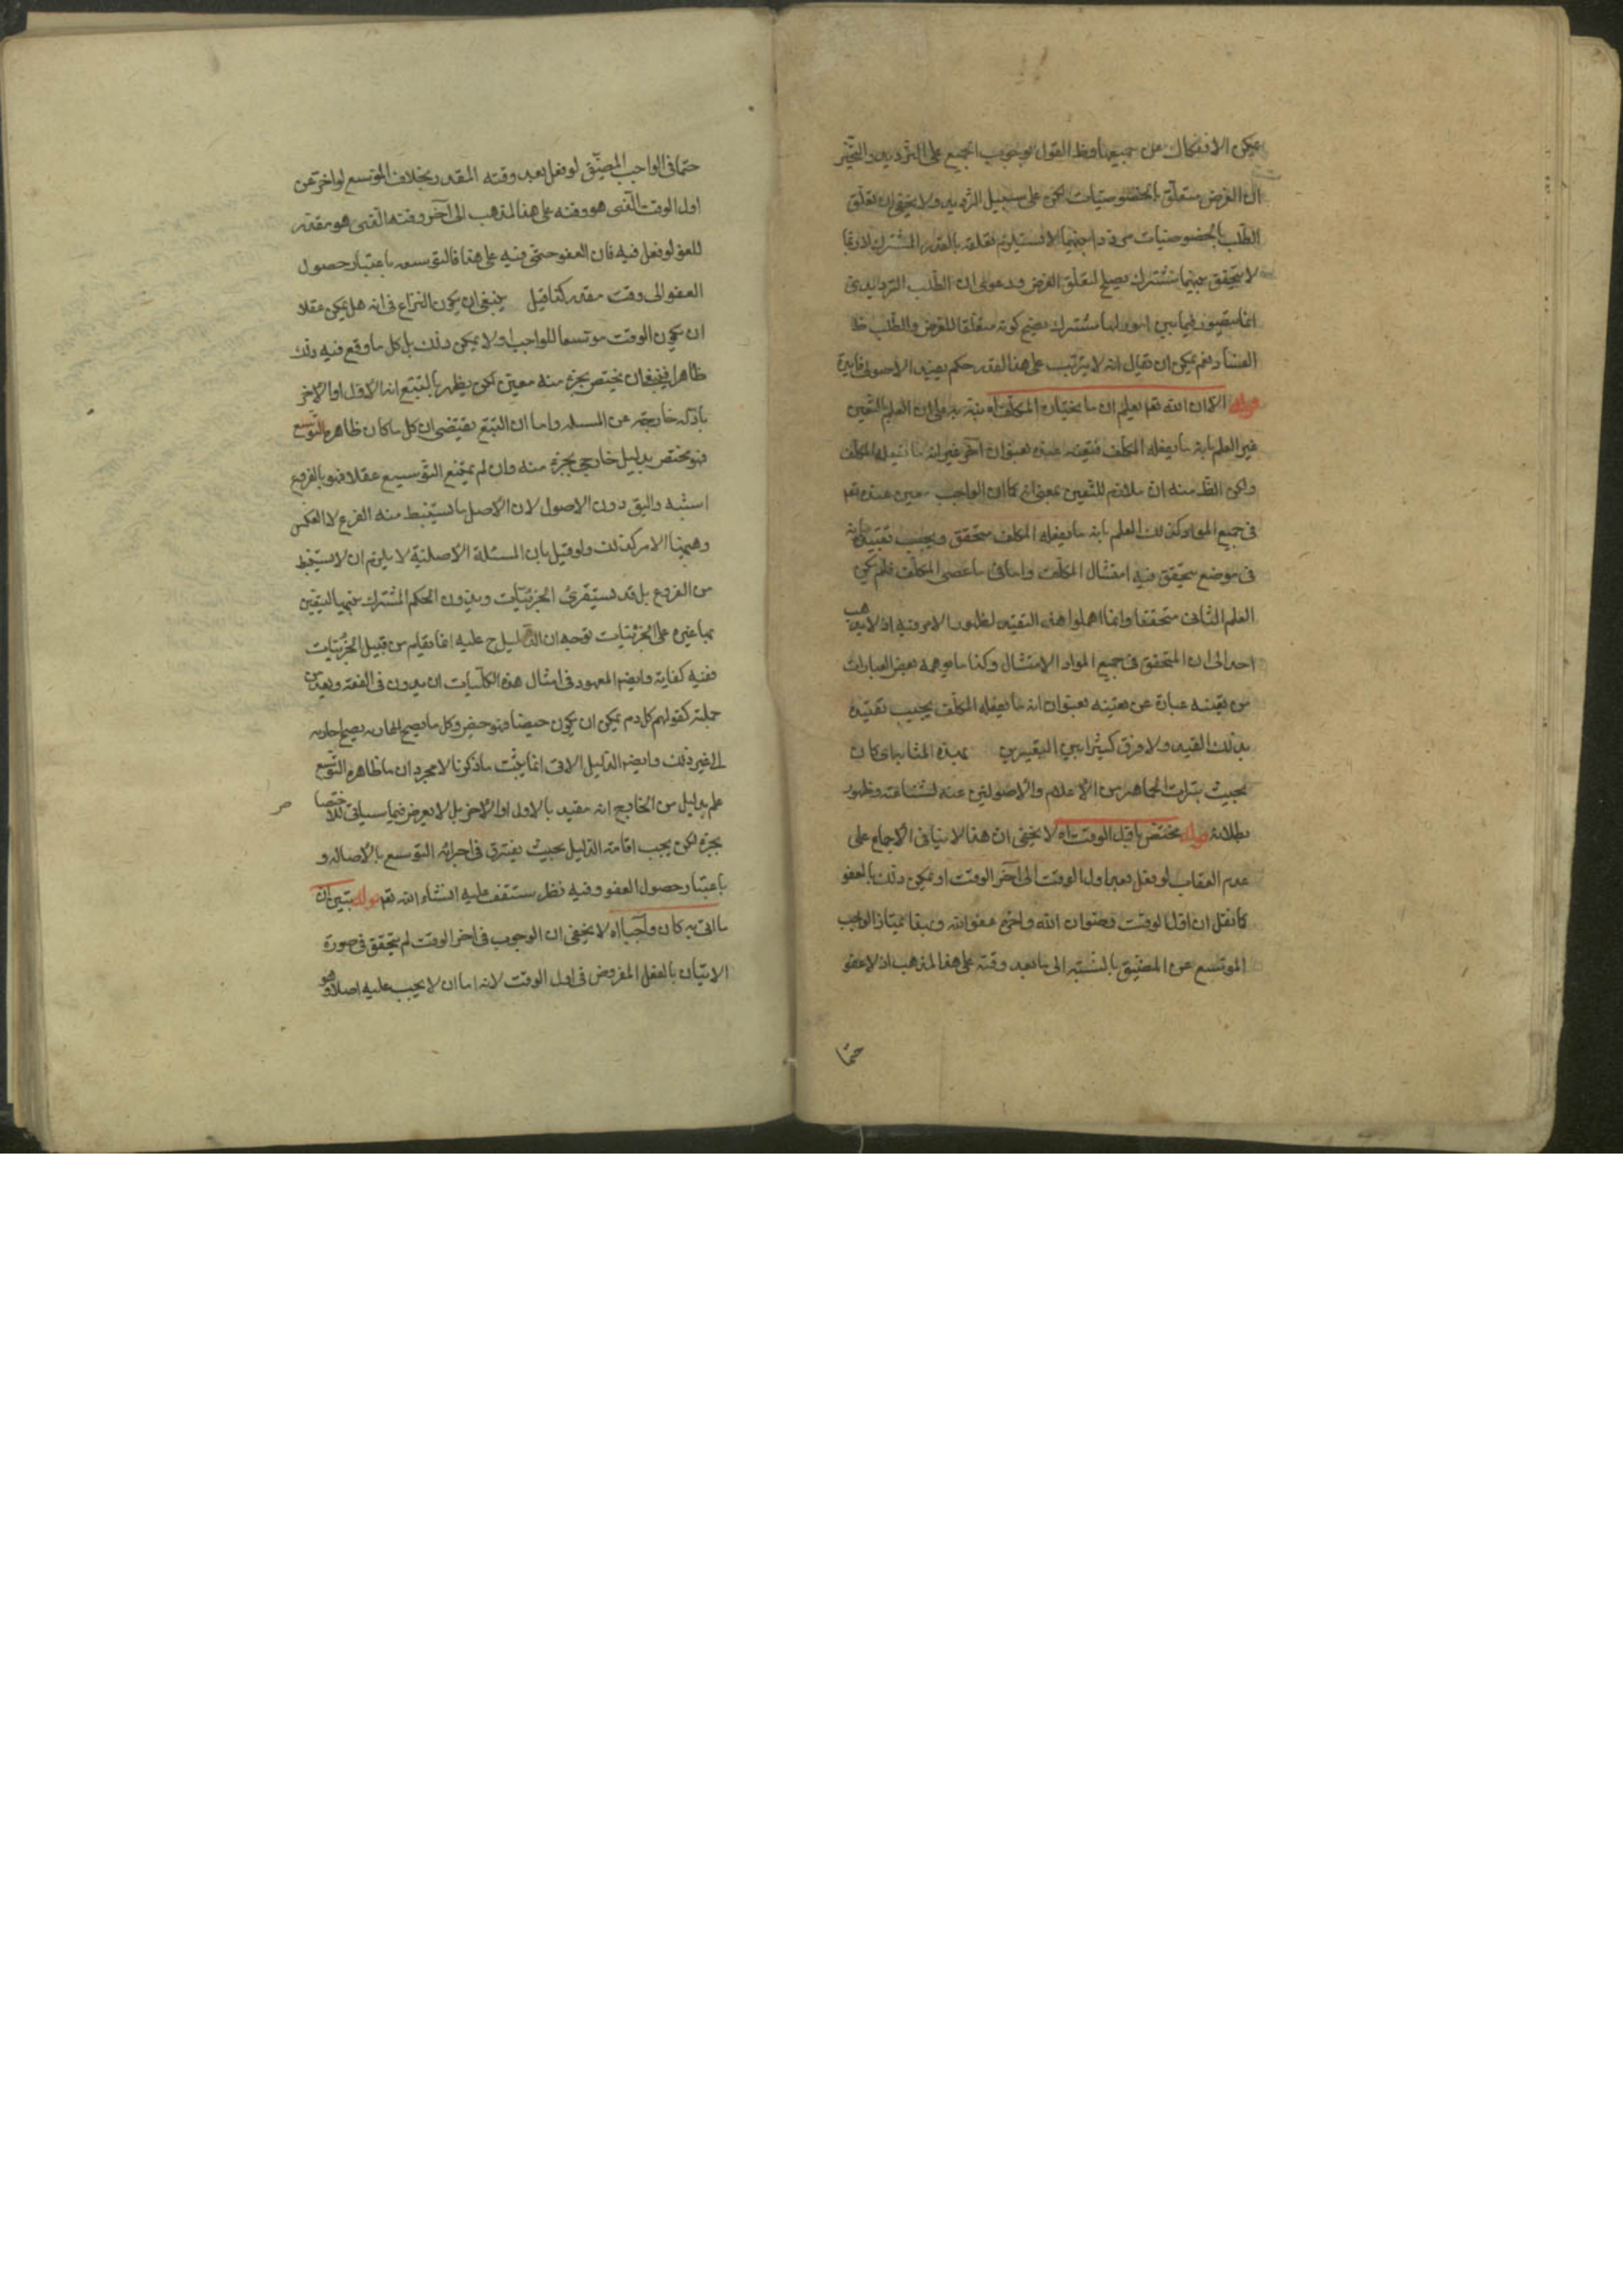 يمكن الانفكاك عن جميعها وظ القول بوجوب الجميع على الترديد والتخيير
ان الغرض متعلق بالخصوصيات لكن على سبيل الترديد ولا يخفى ان تعلق
الطلب بالخصوصيات مرددا بينهما لا يستلزم تعلقه بالقدر المشترك لانه ربما
لا يتحقق بينهما مشترك يصلح لتعلق الغرض ودعوى ان الطلب الترديدى
انما يتصور فيما بين امور لها مشترك يصح كونه متعلقا للغرض والطلب ظ
الفساد نعم يمكن ان يقال انه لا يترتب على هذا القدر حكم يفيد الاصولى فايدة
قوله الا ان الله تعم يعلم ان ما يختاره المكلف اه فيه على ان العلم بالتعين
غير العلم بانه ما يفعله المكلف فتعينه عنده بعنوان آخر غير انه ما يفعله المكلف
ولكن الظ منه انه ملازم للتعين بمعنى ان كما ان الواجب معين عنده تعم
فى جميع المواد كذلك العلم بانه ما يفعله المكلف متحقق ويجب تقييده بانه
فى موضع يتحقق فيه امتثال المكلف واما فى ما عصى المكلف فلم يكن
العلم الثانى متحققا وانما اهملوا هذا التقييد لظهور الامر فيه اذ لا يذهب
احد الى ان المتحقق فى جميع المواد الامتثال وكذا ما يوهمه بعض العبارات
من تعينه عبارة عن تعينه بعنوان انه ما يفعله المكلف يجب تقييده
بذلك القيد ولا فرق كثيرا بين التعبيرين بهذه المثابه اى كان
بحيث يتبرأ الجماهير من الاعلام والاصوليين عنه لشناعته وظهور
بطلانه قوله مختص باول الوقت اه لا يخفى ان هذا لا ينافى الاجماع على
عدم العقاب لو فعل بعد اول الوقت الى آخر الوقت او يمكن ذلك بالعفو
كما نقل ان اول الوقت رضوان الله وآخره عفو الله وبهذا يمتاز الواجب
الموسع عن المضيق بالنسبة الى ما بعد وقته على هذا المذهب اذ لا عفو
حتما
حتما فى الواجب المضيق لو فعل بعد وقته المقدر بخلاف الموسع لو اخر عن
اول الوقت الذى هو وقته على هذا المذهب الى آخر وقته الذى هو مقدر
للعفو لو فعل فيه فان العفو حتمى فيه على هذا فالتوسعه باعتبار حصول
العفو الى وقت مقدر كذا قيل ينبغى ان يكون النزاع فى انه هل يمكن عقلا
ان يكون الوقت موسعا للواجب او لا يمكن ذلك بل كل ما وقع فيه ذلك
ظاهرا فينبغى ان يختص بجزء منه معين لكن يظهر بالتتبع انه الاول او الآخر
بادلة خارجة عن المسئلة واما ان التتبع يقتضى ان كل ما كان ظاهره التوسع
فهو مختص بدليل خارجى بجزء منه وان لم يمتنع التوسيع عقلا فهو بالفروع
اشبه واليق دون الاصول لان الاصل ما يستنبط منه الفرع لا العكس
وههنا الامر كذلك ولو قيل بان المسئلة الاصلية لا يلزم ان لا يستنبط
من الفروع بل قد يستقرئ الجزئيات ويدون الحكم المشترك بينها ليتعين
بها غيره على الجزئيات توجه ان الدليل ح عليه انما يقام من قبيل الجزئيات
ففيه كفاية وايضا المعهود فى امثال هذه الكليات ان يدون فى الفقه ويعد من
جملته كقولهم كل دم يمكن ان يكون حيضا فهو حيض وكل ما يصح اعارته يصح اجارته
الى غير ذلك وايضا الدليل الاتى انما يثبت ما ذكرنا لا مجرد ان ما ظاهره التوسع
علم بدليل من الخارج انه مقيد بالاول او الآخر بل لا تعرض فيما سياتى للاختصاص
بجزء لكن يجب اقامة الدليل بحيث يفترق فى اجزائه التوسع بالاصالة و
باعتبار حصول العفو وفيه نظر ستقف عليه انشاء الله تعم قوله يتبين ان
ما اتى به كان واجبا اه لا يخفى ان الوجوب فى آخر الوقت لم يتحقق فى صورة
الاتيان بالفعل المفروض فى اول الوقت لانه اما ان لا يجب عليه اصلا وهو